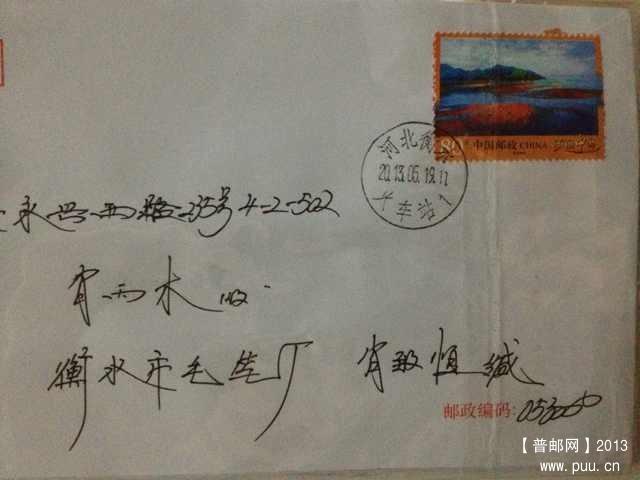 80分 中国邮政 CHINA
河北衡水
2013.05.19.11
火车站1
永兴西路235号4-2-502
肖雨木 收
衡水市毛笔厂 肖毅恒缄
邮政编码:053000
【普邮网】2013
www.puu.cn